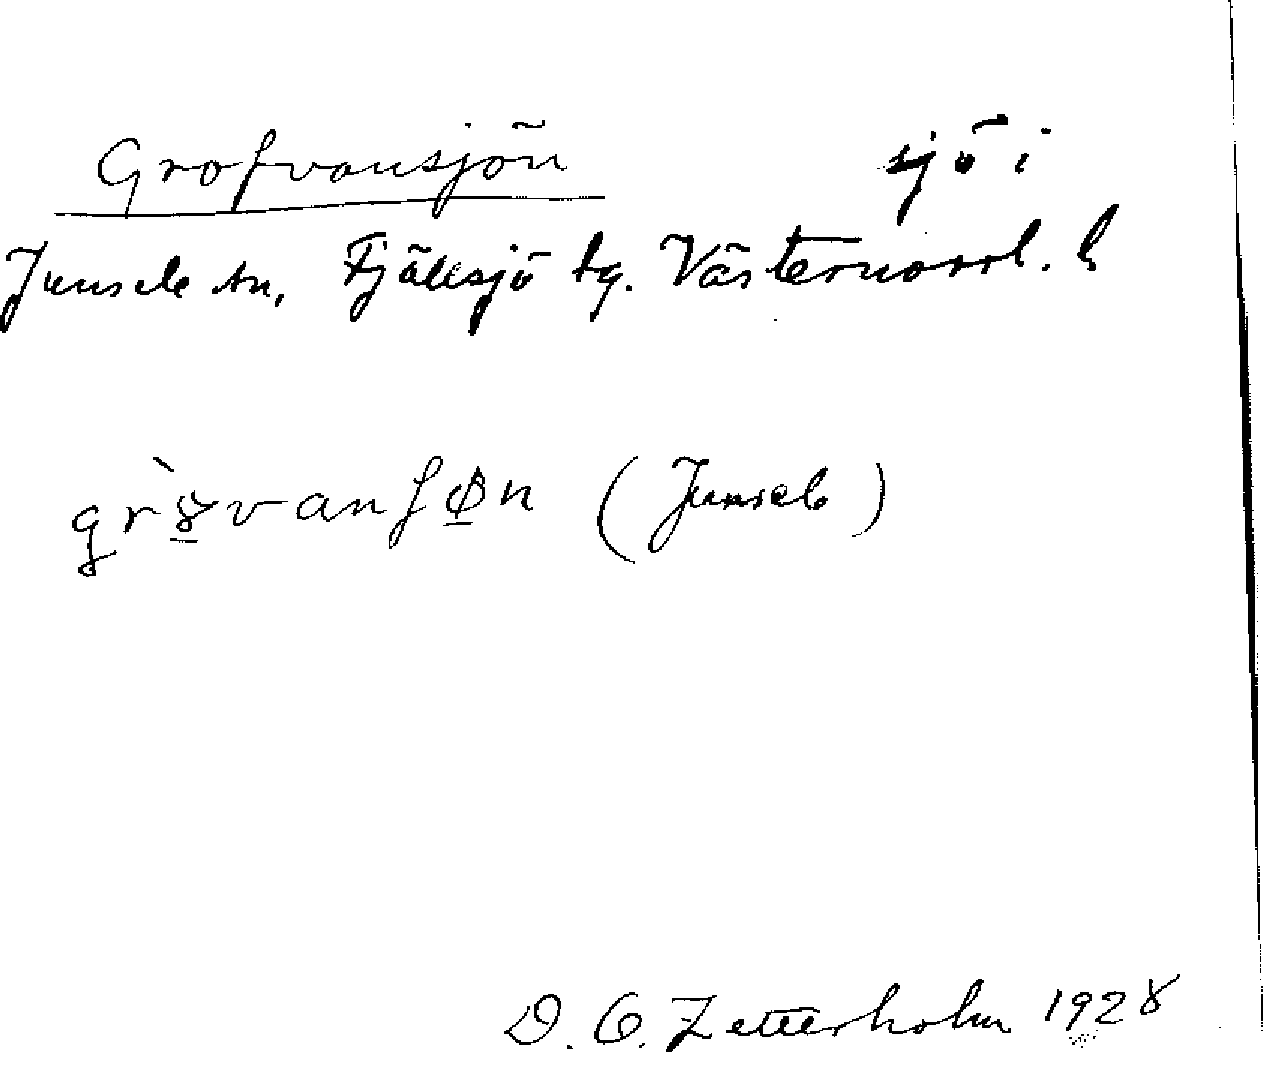 Grofvansjön sjö i
Junsele sn, Fjällsjö tg. Västernorrl. l.
(Junsele)
D. O. Zetterholm 1928